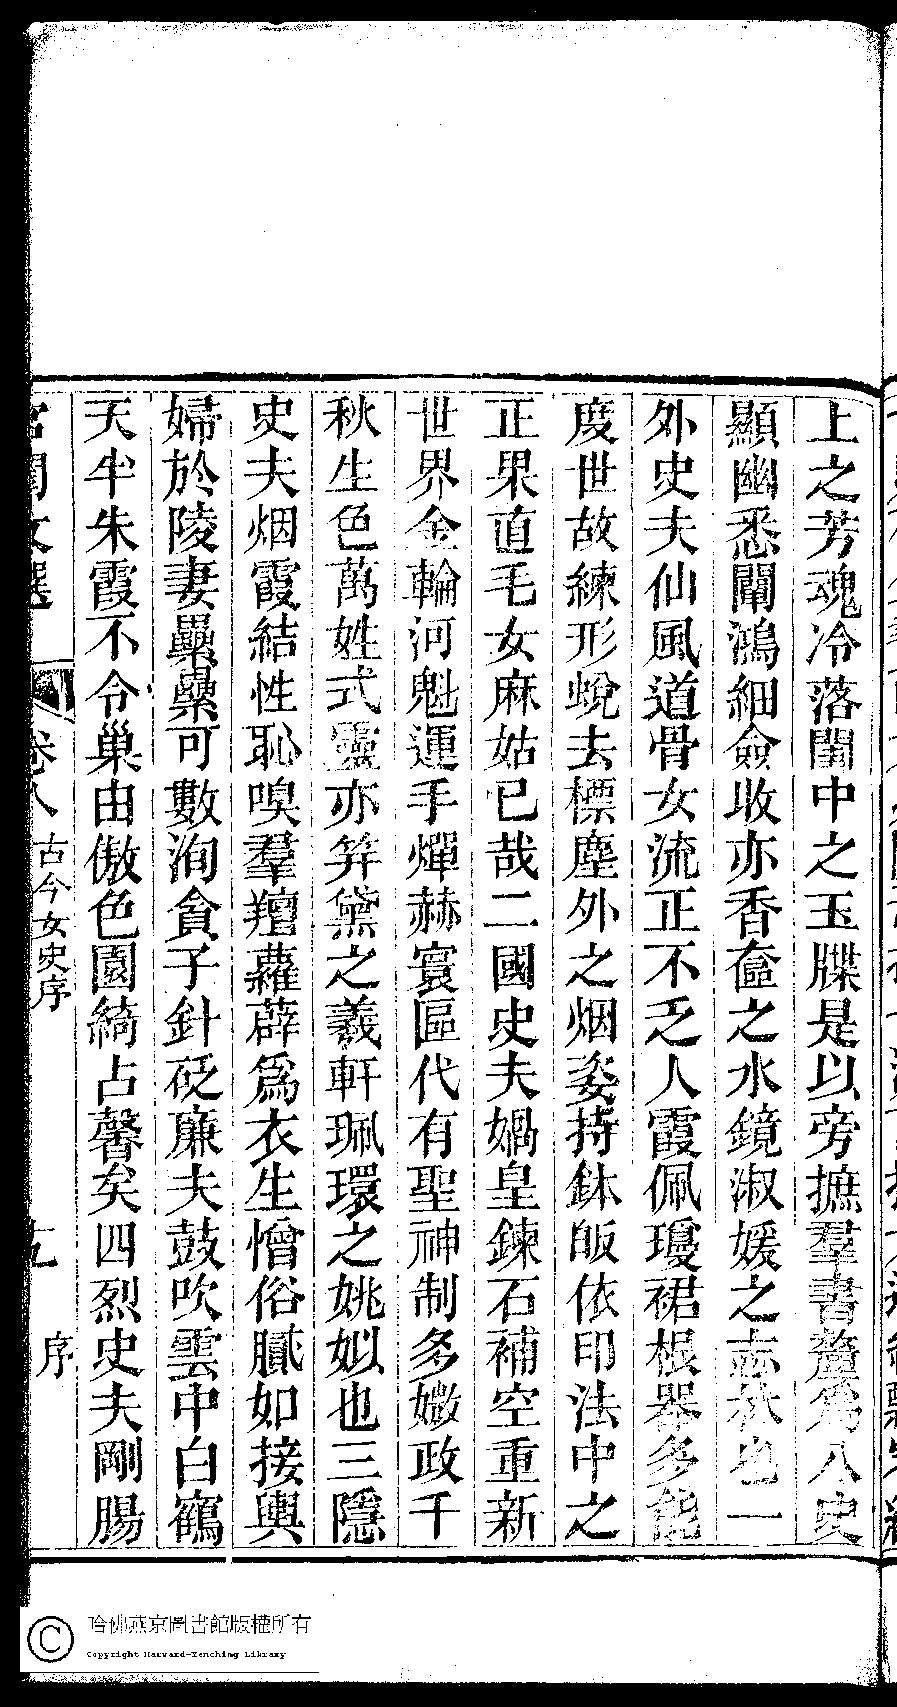 上之芳魂冷落閨中之玉牒是以旁摭羣書釐爲八史
顯幽悉闡鴻細僉收亦香奩之水鏡淑媛之志林也一
外史夫仙風道骨女流正不乏人霞佩瓊裙根器多能
度世故練形蛻去標塵外之烟姿持鉢皈依印法中之
正果直毛女麻姑已哉二國史夫媧皇鍊石補空重新
世界金輪河魁運手燀赫寰區代有聖神制多媺政千
秋生色萬姓式靈亦笄黛之羲軒珮環之姚姒也三隱
史夫烟霞結性恥嗅羣羶蘿薜爲衣生憎俗膩如接輿
婦於陵妻纍纍可數洵貪子針砭廉夫鼓吹雲中白鶴
天半朱霞不令巢由傲色園綺占馨矣四烈史夫剛腸
宮閨文選
卷八
古今女史序
十九
序
哈佛燕京圖書館版權所有
Copyright Harvard-Yenching Library